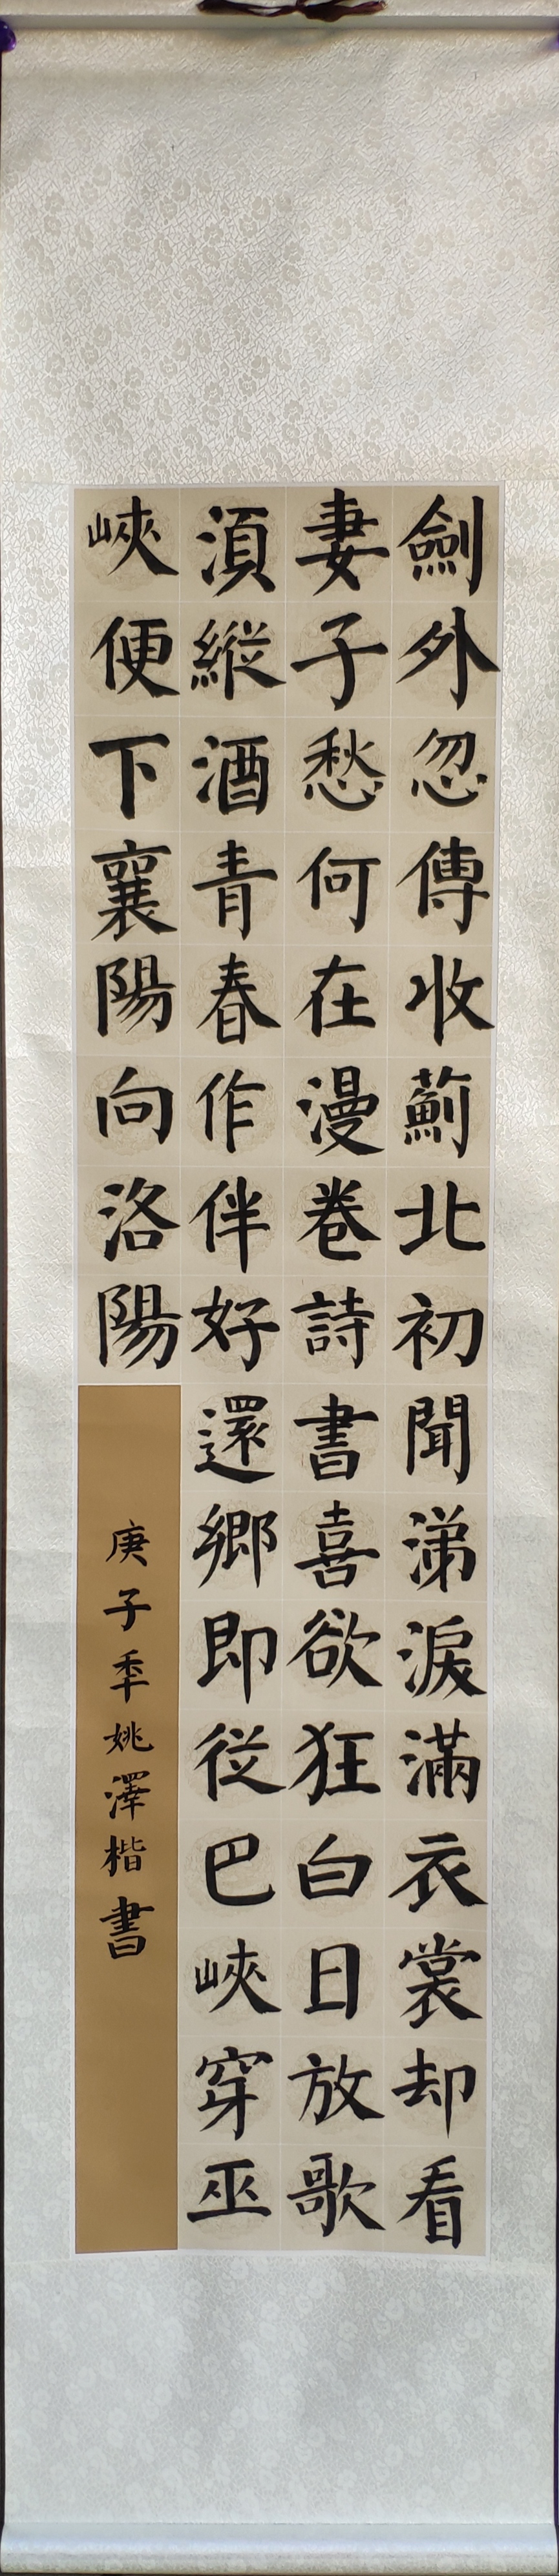 劍外忽傳收薊北初聞涕淚滿衣裳却看
妻子愁何在漫卷詩書喜欲狂白日放歌
湏縦酒青春作伴好還鄉即従巴峽穿巫
峽便下襄陽向洛陽
庚子秊姚澤楷書